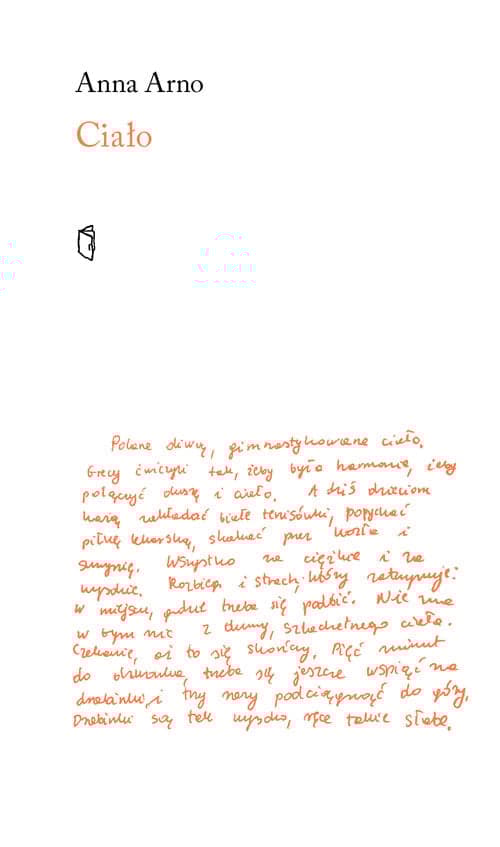 Anna Arno
Ciało
Polane oliwą, gimnastykowane ciało.
Grecy ćwiczyli tak, żeby była harmonia, żeby
połączyć duszę i ciało. A dziś dzieciom
każą zakładać białe tenisówki, popychać
piłkę lekarską, skakać przez kozła i
skrzynię. Wszystko za ciężkie i za
wysokie. Rozbieg i strach, który zatrzymuje
w miejscu, gdzie trzeba się podbić. Nie ma
w tym nic z dumy, szlachetnego ciała.
Czekanie, aż to się skończy. Pięć minut
do dzwonka, trzeba się jeszcze wspiąć na
drabinki i trzy razy podciągnąć do góry.
Drabinki są tak wysoko, ręce takie słabe.